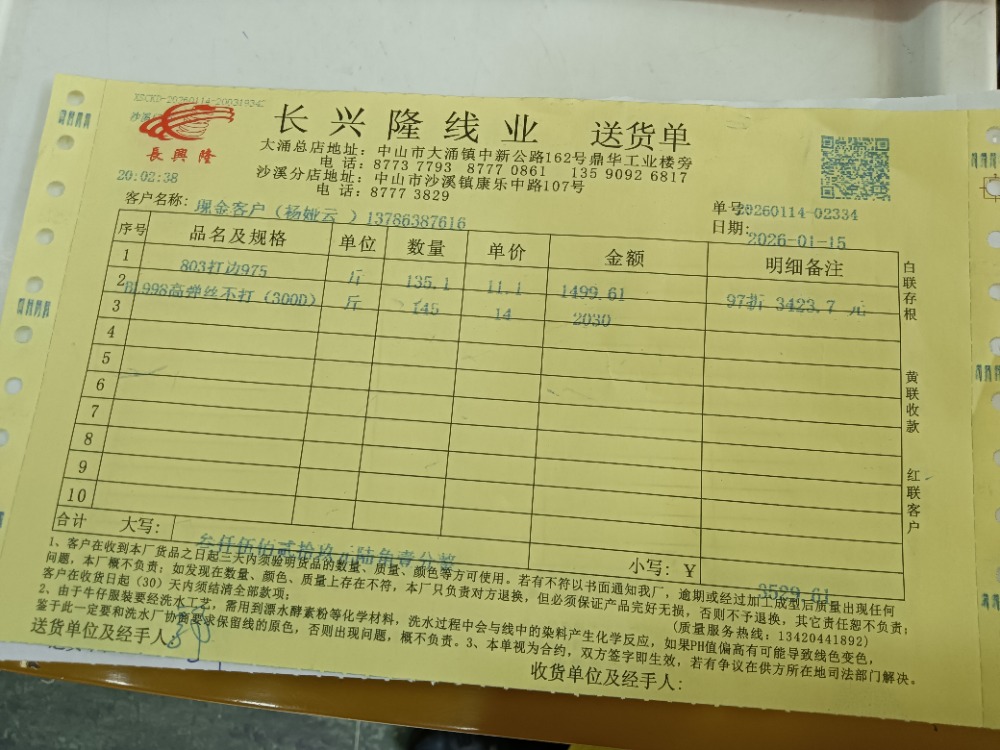 XSCKD-20260114-200319242
沙溪
長興隆
长兴隆线业 送货单
大涌总店地址：中山市大涌镇中新公路162号鼎华工业楼旁
电 话：8773 7793 8777 0861 135 9092 6817
沙溪分店地址：中山市沙溪镇康乐中路107号
电 话：8777 3829
20:02:38
客户名称: 现金客户（杨娅云 ）13786387616
单号:20260114-02334
日期: 2026-01-15
序号 品名及规格 单位 数量 单价 金额 明细备注
1 803打边975 斤 135.1 11.1 1499.61 97折 3423.7 元
2 BL998高弹丝不打（300D） 斤 145 14 2030
3
4
5
6
7
8
9
10
合计 大写: 叁仟伍佰贰拾玖元陆角壹分整 小写: ￥ 3529.61
白联存根
黄联收款
红联客户
1、客户在收到本厂货品之日起三天内须验明货品的数量、质量、颜色等方可使用。若有不符以书面通知我厂，逾期或经过加工成型后质量出现任何
问题，本厂概不负责；如发现在数量、颜色、质量上存在不符，本厂只负责对方退换，但必须保证产品完好无损，否则不予退换，其它责任恕不负责；
客户在收货日起（30）天内须结清全部款项；
(质量服务热线：13420441892)
2、由于牛仔服装要经洗水工艺，需用到漂水酵素粉等化学材料，洗水过程中会与线中的染料产生化学反应，如果PH值偏高有可能导致线色变色，
鉴于此一定要和洗水厂协商要求保留线的原色，否则出现问题，概不负责。3、本单视为合约，双方签字即生效，若有争议在供方所在地司法部门解决。
送货单位及经手人:
收货单位及经手人: